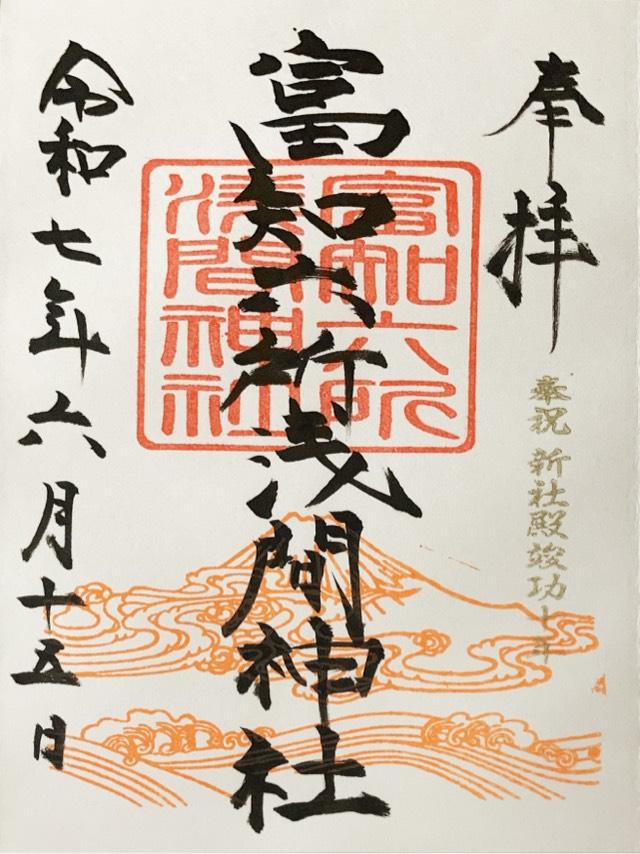 奉拝
奉祝 新社殿竣功十年
富知六所浅間神社
富知六所
浅間神社
令和七年六月十五日